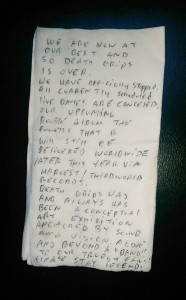 WE ARE NOW AT
OUR BEST AND
SO DEATH GRIPS
IS OVER.
WE HAVE OFFICIALLY STOPPED.
ALL CURRENTLY SCHEDULED
LIVE DATES ARE CANCELED.
OUR UPCOMING
DOUBLE ALBUM THE
POWERS THAT B
WILL STILL BE
DELIVERED WORLDWIDE
LATER THIS YEAR VIA
HARVEST/THIRDWORLD
RECORDS.
DEATH GRIPS WAS
AND ALWAYS HAS
BEEN A CONCEPTUAL
ART EXHIBITION
ANCHORED BY SOUND
AND VISION. ABOVE
AND BEYOND A "BAND"
TO OUR TRUEST FANS,
PLEASE STAY LEGEND.